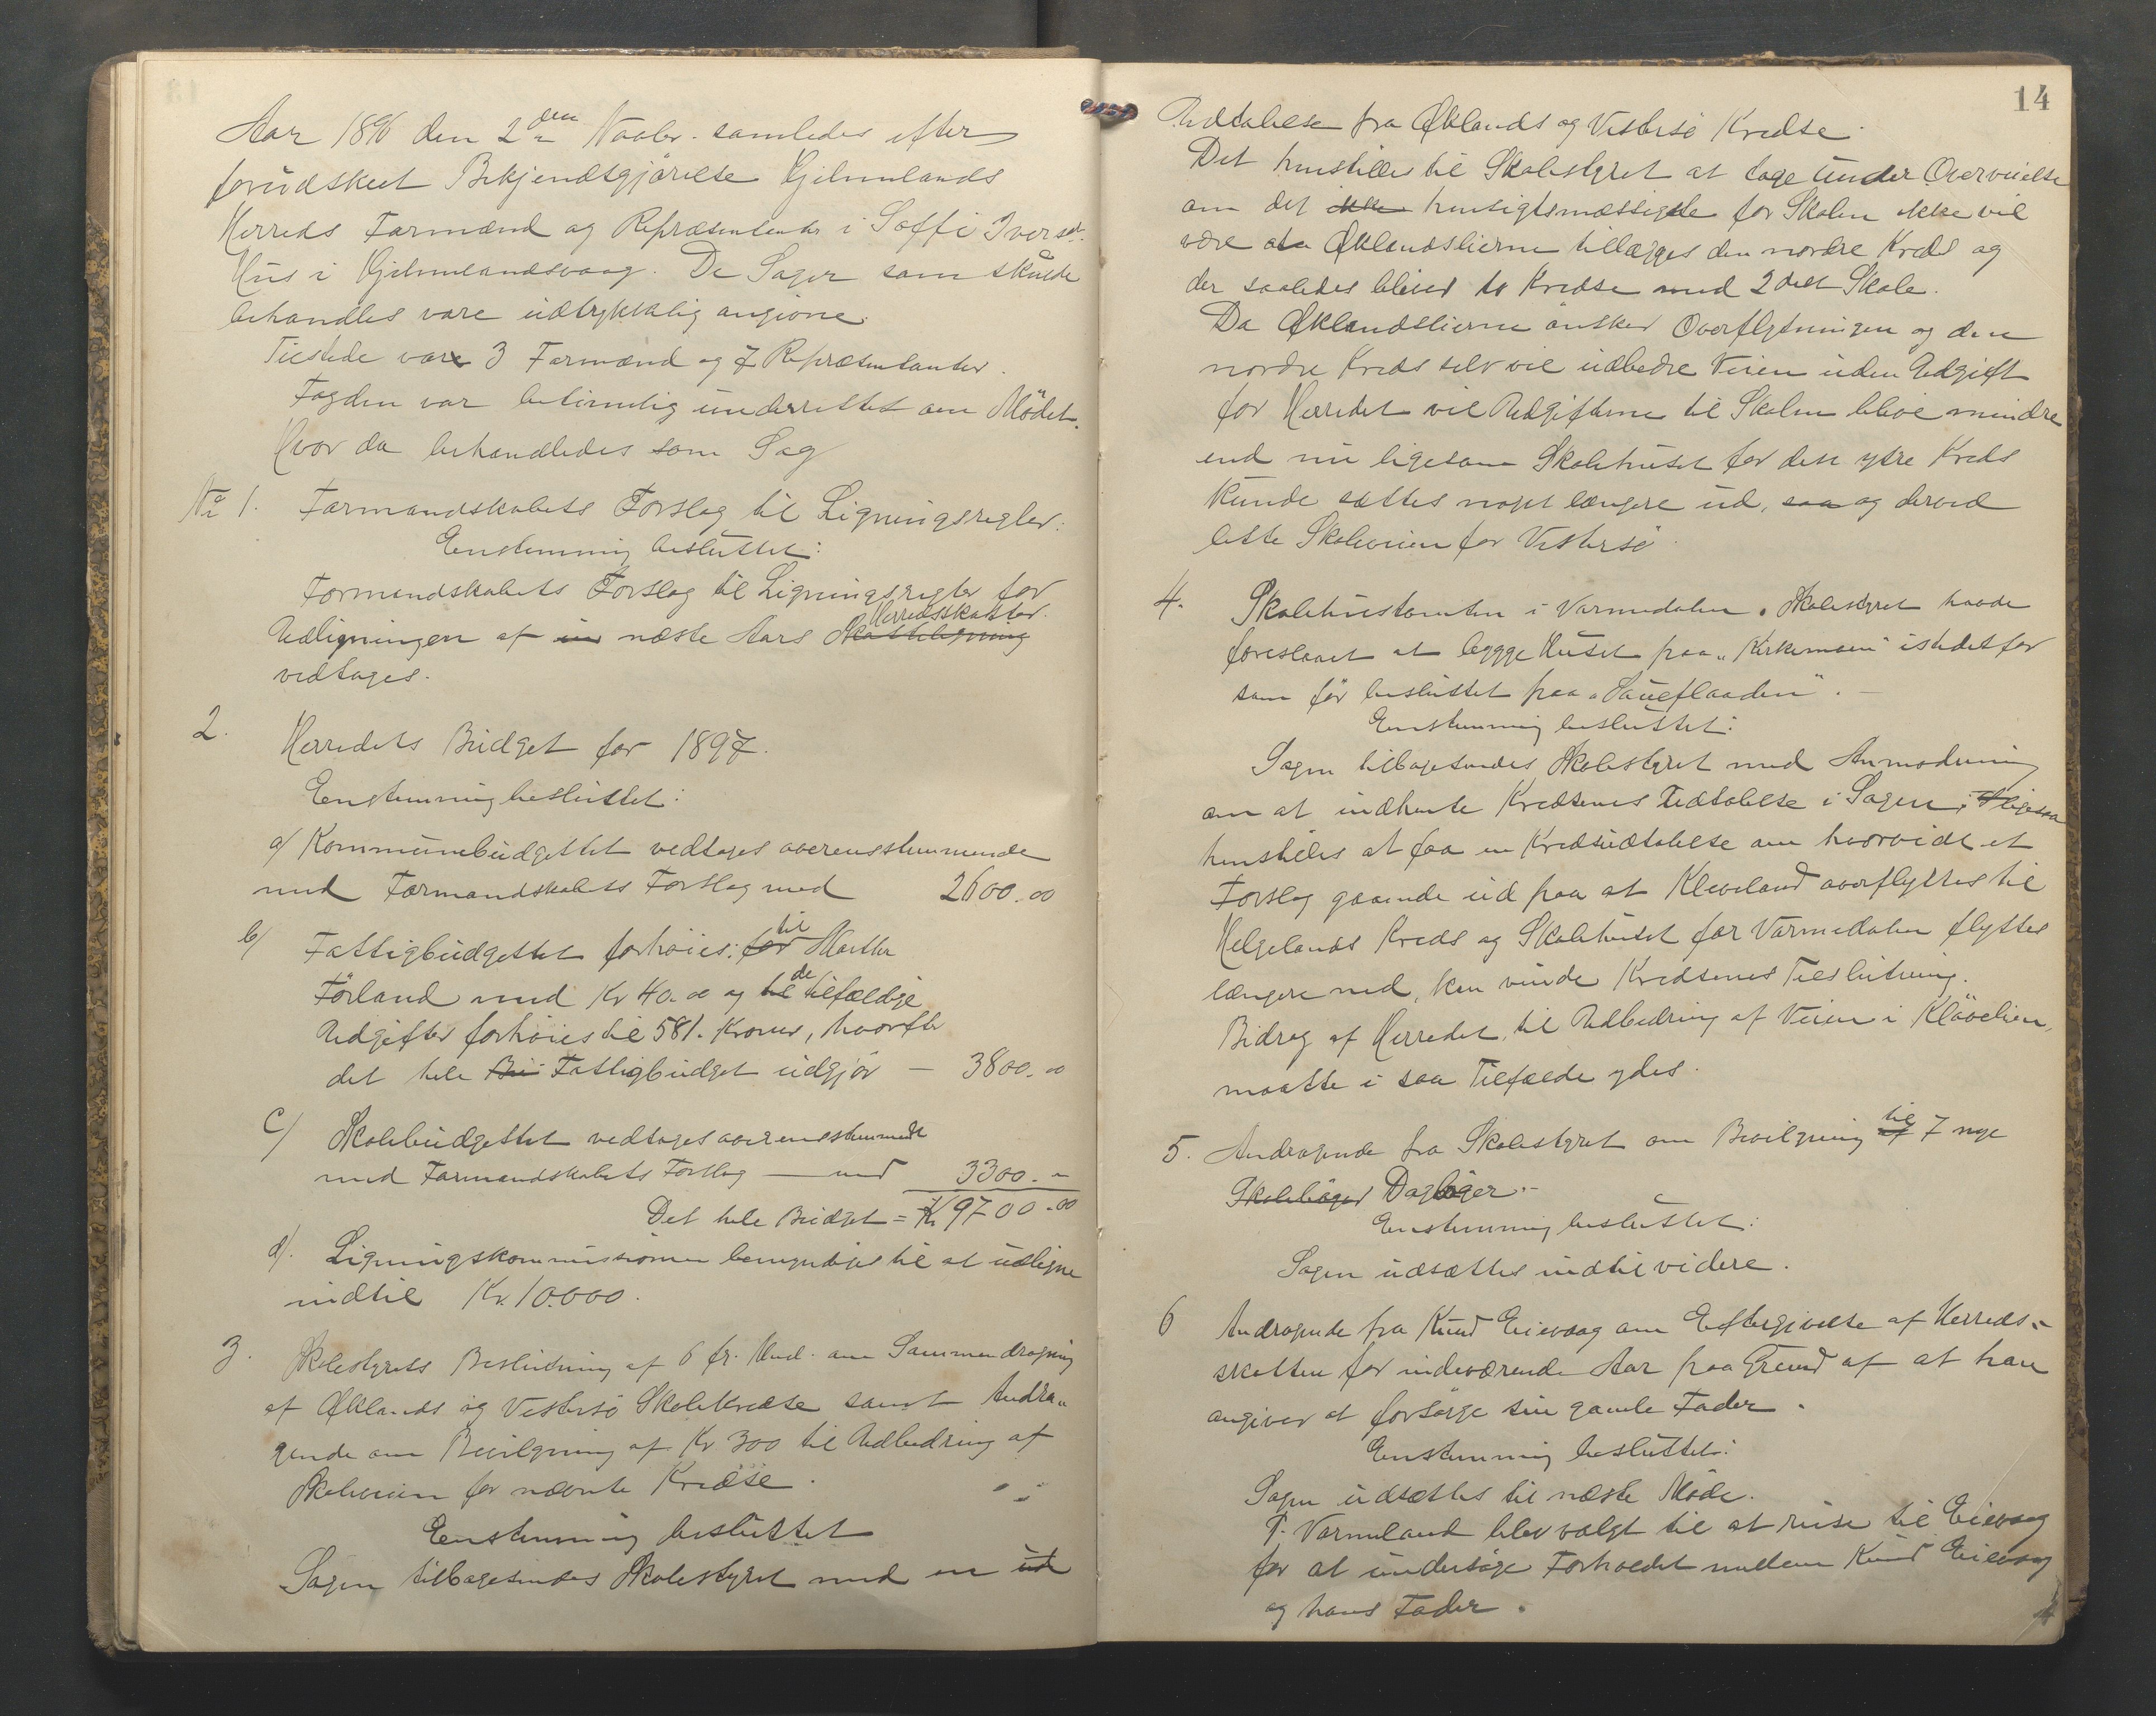 Aar 1896 den 2den Novbr. samledes efter
forudskeet Bekjendtgjørelse Hjelmelands
Herreds Formænd og Repræsentanter i Soffi Iversd.
Hus i Hjelmelandsvaag. De Sager som skulde
behandles vare udtrykkelig angivne.
Tilstede vare 3 Formænd og 7 Repræsentanter.
Fogden var betimelig underrettet om Mödet.
Hvor da behandledes som Sag
No 1. Formandskabets Forslag til Ligningsregler:
Eenstemmig besluttet:
Formandskabets Forslag til Ligningsregler for
Herredsskatter.
Udligningen af næste Aars Skatteligning
vedtages.
2. Herredets Budget for 1897.
Eenstemmig besluttet:
a/ Kommunebudgettet vedtages overensstemmende
med Formandskabets Forslag med 2600.00
b/ Fattigbudgettet forhöies: for til Marthe
Förland med Kr 40.00 og til de tilfældige
Udgifter forhöies til 581. Kroner, hvorefter
det hele Bu Fattigbudget udgjör — 3800.00
c/ Skolebudgettet vedtages overensstemmende
med Formandskabets Forslag — med 3300. -
Det hele Budget = Kr 9700.00
d/. Ligningskommissionen bemyndiges til at udligne
indtil Kr. 10.000.
3. Skolestyrets Beslutning af 6 fr. Md. om Sammendragning
af Øklands og Vestersö Skolekredse samt Andra„
gende om Bevilgning af Kr 300 til Udbedring af
Skoleveien for nævnte Kredse.
Eenstemmig besluttet
Sagen tilbagesendes Skolestyret med en ud
14
Udtalelse fra Øklands og Vestersö Kredse.
Det henstilles til Skolestyret at tage under Overveielse
om det ikke hensigtsmæssigste for Skolen ikke vil
være at Øklandslierne tillægges den nordre Kreds og
der saaledes bliver to Kredse med 2delt Skole.
Da Øklandslierne önsker Overflytningen og den
nordre Kreds selv vil udbedre Veien uden Udgift
for Herredet vil Udgifterne til Skolen blive mindre
end nu ligesom Skolehuset for den ydre Kreds
kunde sættes noget længere ud, saa og derved
lette Skoleveien for Vestersö.
4. Skolehustomten i Vormedalen. Skolestyret havde
foreslaaet at lægge Huset paa „Kirkemoen" istedetfor
som för besluttet paa „Saueflaaden". —
Eenstemmig besluttet:
Sagen tilbagesendes Skolestyret med Anmodning
om at indhente Kredsenes Udtalelse i Sagen, ligesaa
henstilles at faa en Kredsudtalelse om hvorvidt et
Forslag gaaende ud paa at Kleveland overflyttes til
Helgelands Kreds og Skolehuset for Vormedalen flyttes
længere ned, kan vinde Kredsenes Tilslutning.
Bidrag af Herredet til Udbedring af Veien i Klövelien,
maatte i saa Tilfælde ydes.
5. Andragende fra Skolestyret om Bevilgning af til 7 nye
Skoleböger Dagböger.-
Eenstemmig besluttet:
Sagen udsættes indtil videre.
6 Andragende fra Knud Eievaag om Eftergivelse af Herreds-
skatten for indeværende Aar paa Grund af at han
angiver at forsörge sin gamle Fader.
Eenstemmig besluttet:
Sagen udsættes til næste Möde.
P. Vormeland blev valgt til at reise til Eievaag
for at undersöge Forholdet mellem Knud Eievaag
og hans Fader.